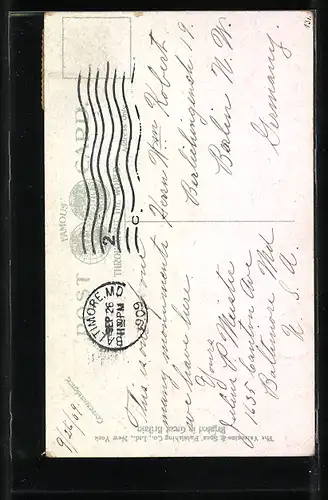 POST CARD
FAMOUS
THROU
BALTIMORE, MD.
SEP 26
PM
1909
2
C
9/26/09
Correspondence
This is one of the
many monuments
we have here.
Yours
Julius P Meister
1635 Canton Ave
Baltimore Md
U. S. A.
Herrn Wm Robert
Berlichingenstr 19.
Berlin N. W.
Germany.
The Valentine & Sons' Publishing Co., Ltd., New York
Printed in Great Britain